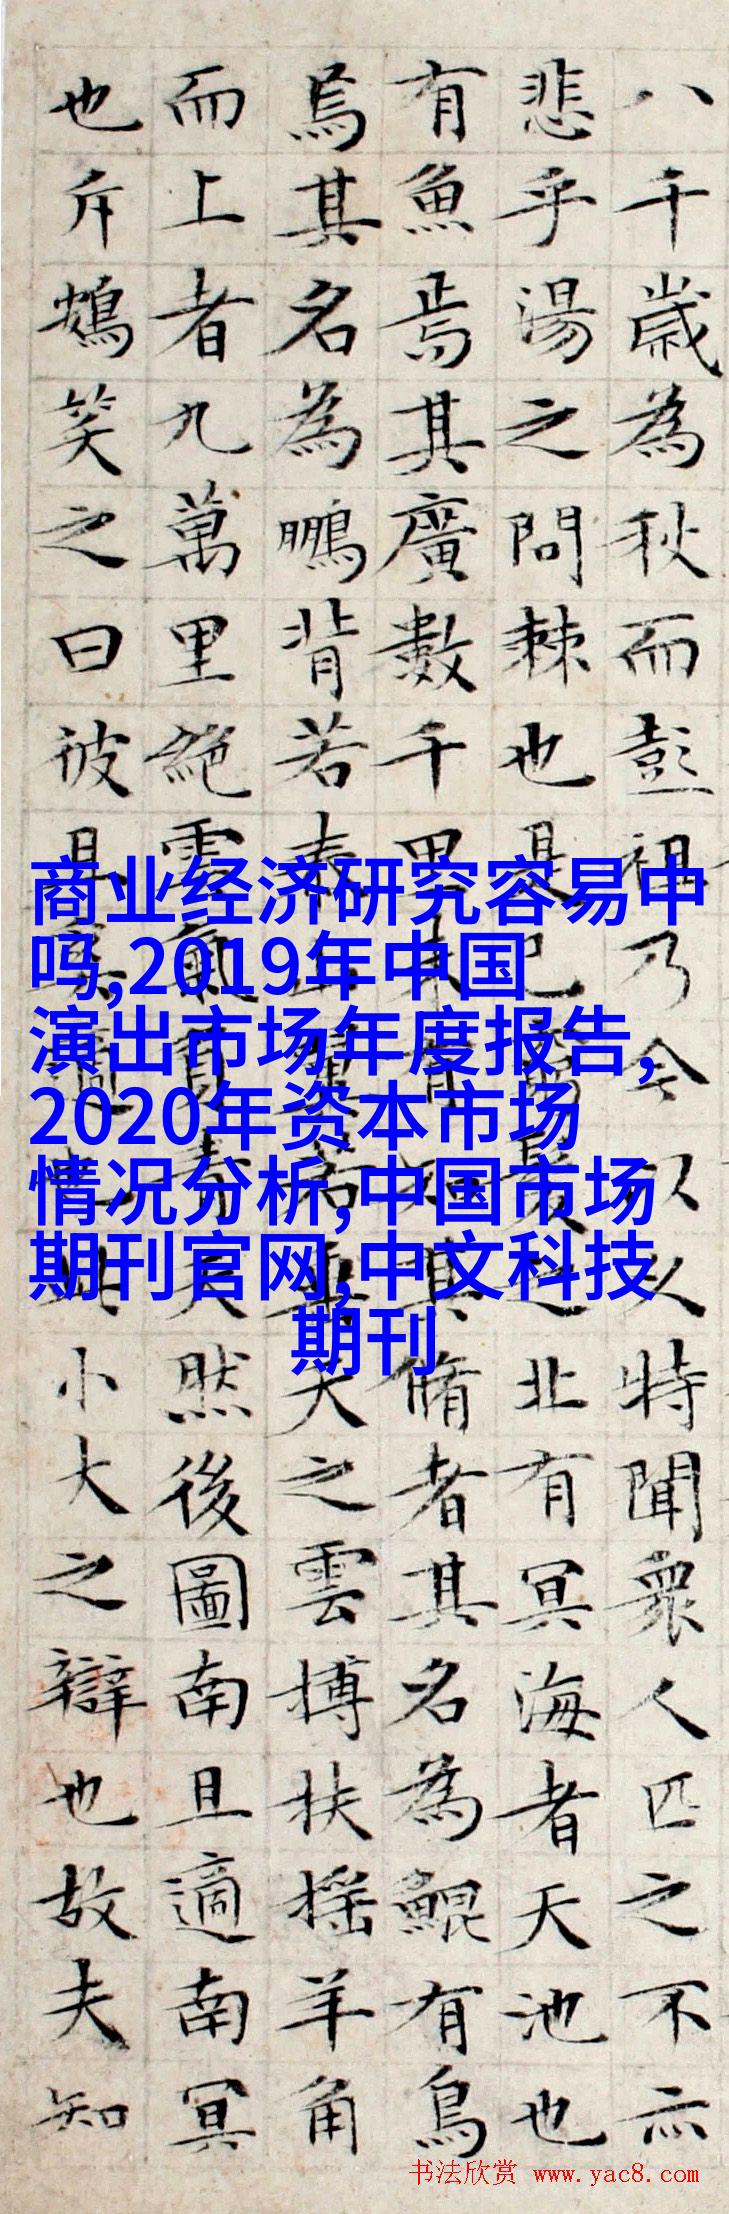 八千歲為秋而彭祖乃今以久特聞衆人匹之不亦
悲乎湯之問棘也是已窮髮之北有冥海者天池也
有魚焉其廣數千里未有知其脩者其名為鯤有鳥
焉其名為鵬背若泰山翼若垂天之雲搏扶摇羊角
而上者九萬里絕雲氣負青天然後圖南且適南冥
也斥鴳笑之曰彼且奚適也此小大之辯也故夫知
商业经济研究容易中
吗,2019年中国
演出市场年度报告,
2020年资本市场
情况分析,中国市场
期刊官网,中文科技
期刊
书法欣赏 www.yac8.com